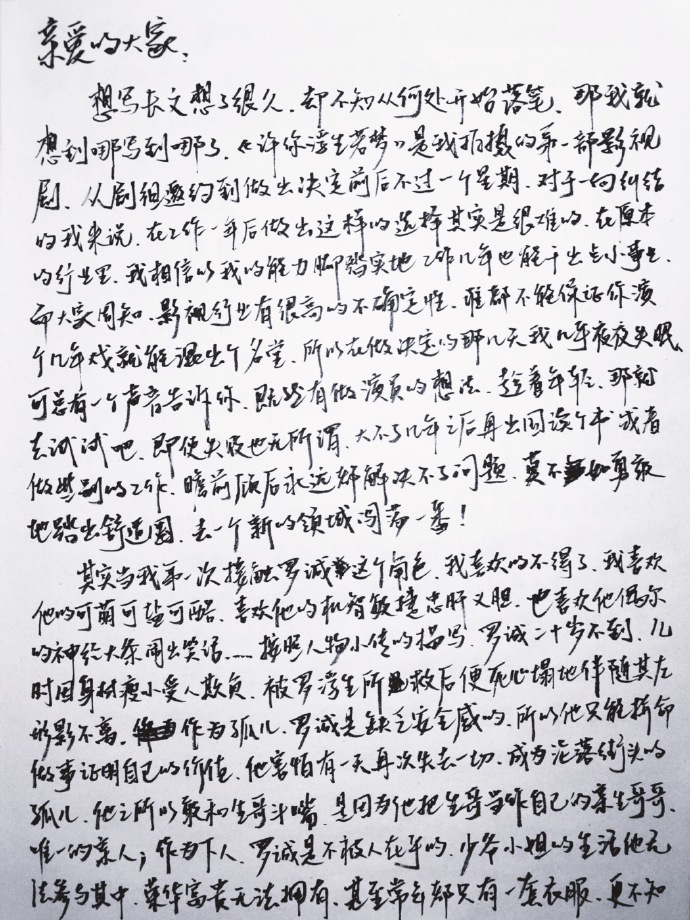 亲爱的大家:
想写长文想了很久，却不知从何处开始落笔，那我就
想到哪写到哪了。《许你浮生若梦》是我拍摄的第一部影视
剧，从剧组邀约到做出决定前后不过一个星期，对于一向纠结
的我来说，在工作一年后做出这样的选择其实是很难的，在原本
的行业里，我相信以我的能力脚踏实地工作几年也能干出点小事业，
而大家周知，影视行业有很高的不确定性，谁都不能保证你演
个几年戏就能混出个名堂，所以在做决定的那几天我几乎夜夜失眠，
可总有一个声音告诉你，既然有做演员的想法，趁着年轻，那就
去试试吧，即使失败也无所谓，大不了几年之后再出国读个书或者
做些别的工作，瞻前顾后永远都解决不了问题，莫不如勇敢
地踏出舒适圈，去一个新的领域闯荡一番！
其实当我第一次接触罗诚这个角色，我喜欢的不得了，我喜欢
他的可萌可盐可酷，喜欢他的机智敏捷忠肝义胆，也喜欢他偶尔
的神经大条闹出笑话……按照人物小传的描写，罗诚二十岁不到，儿
时因身材瘦小受人欺负，被罗浮生所救后便死心塌地伴随其左
形影不离，作为孤儿，罗诚是缺乏安全感的，所以他只能拼命
做事证明自己的价值，他害怕有一天再次失去一切，成为流落街头的
孤儿，他之所以敢和生哥斗嘴，是因为他把生哥当作自己的亲生哥哥，
唯一的亲人；作为下人，罗诚是不被人在乎的，少爷小姐的生活他无
法参与其中，荣华富贵无法拥有，甚至常年都只有一套衣服，更不知